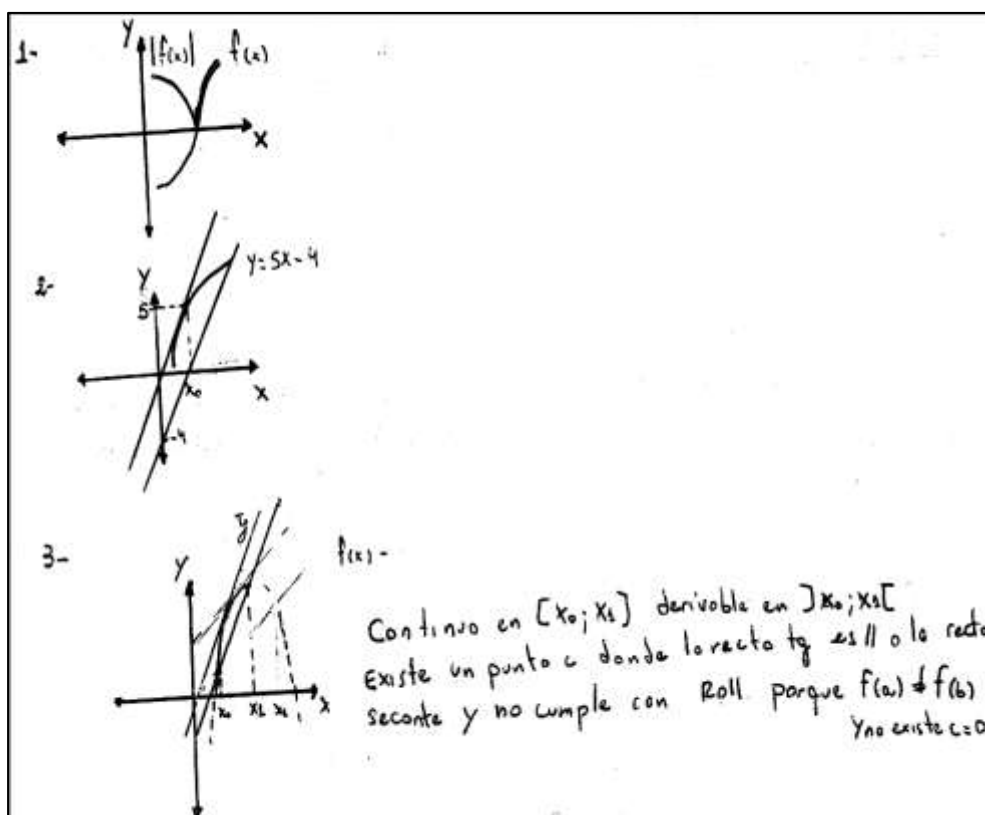 1-
Y
|f(x)|
f(x)
X
2-
Y
5
y=5x-4
x₀
X
-4
3-
Y
Tg
f(x)-
x₀
x₁
x₁
X
Continuo en [x₀; x₁] derivable en ]x₀; x₁[
Existe un punto c donde la recta tg es // a la recta
secante y no cumple con Roll porque f(a) ≠ f(b)
y no existe c=0